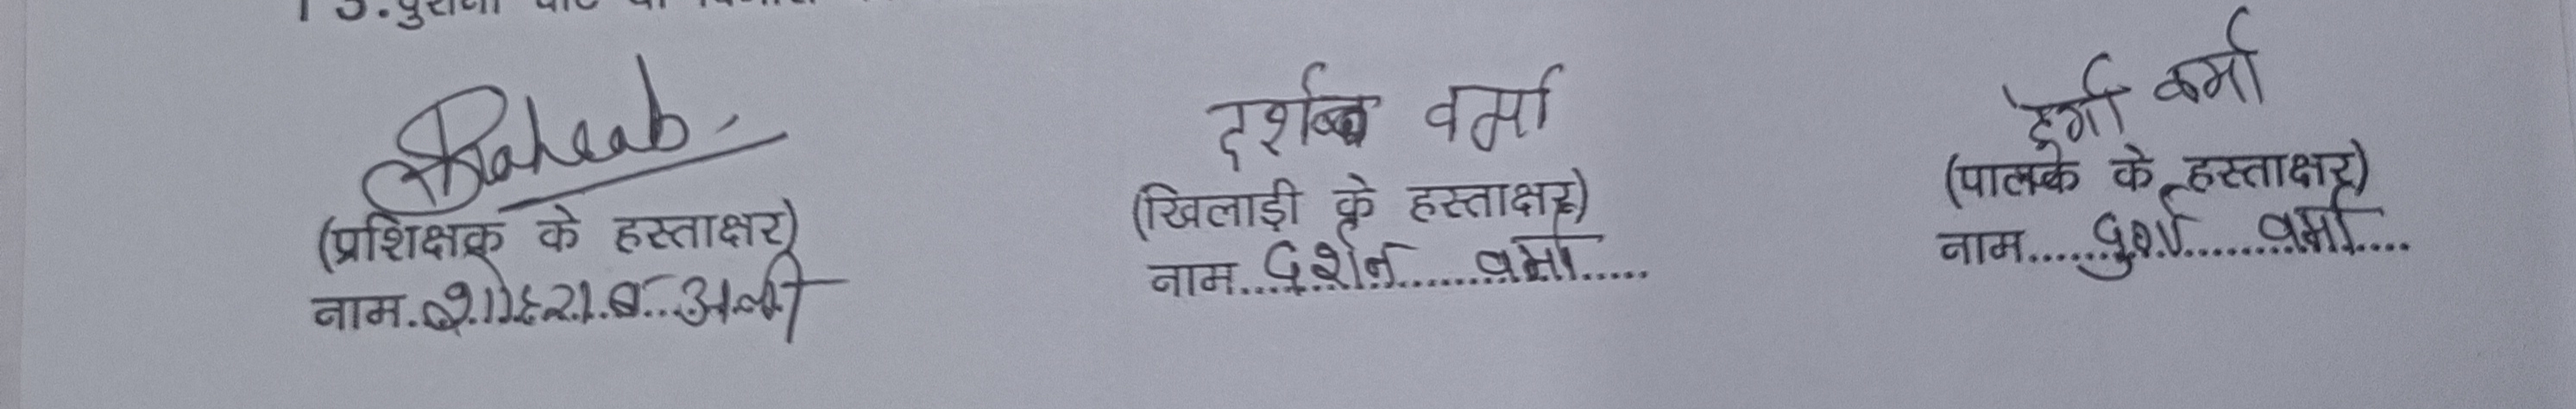 13. पुरानी चोट या
दर्शन वर्मा
दुर्गा वर्मा
(प्रशिक्षक के हस्ताक्षर)
(खिलाड़ी के हस्ताक्षर)
(पालक के हस्ताक्षर)
नाम. शोहराब अली
नाम... दर्शन वर्मा.....
नाम..... दुर्गा वर्मा....